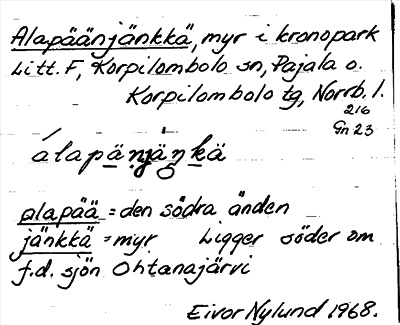 Alapäänjänkkä, myr i kronopark
Litt. F, Korpilombolo sn, Pajala o.
Korpilombolo tg, Norrb. l.
216
Gn 23
álapä̱ṇjäŋ ḵä
alapää = den södra änden
jänkkä = myr Ligger söder om
f.d. sjön Ohtanajärvi
Eivor Nylund 1968.